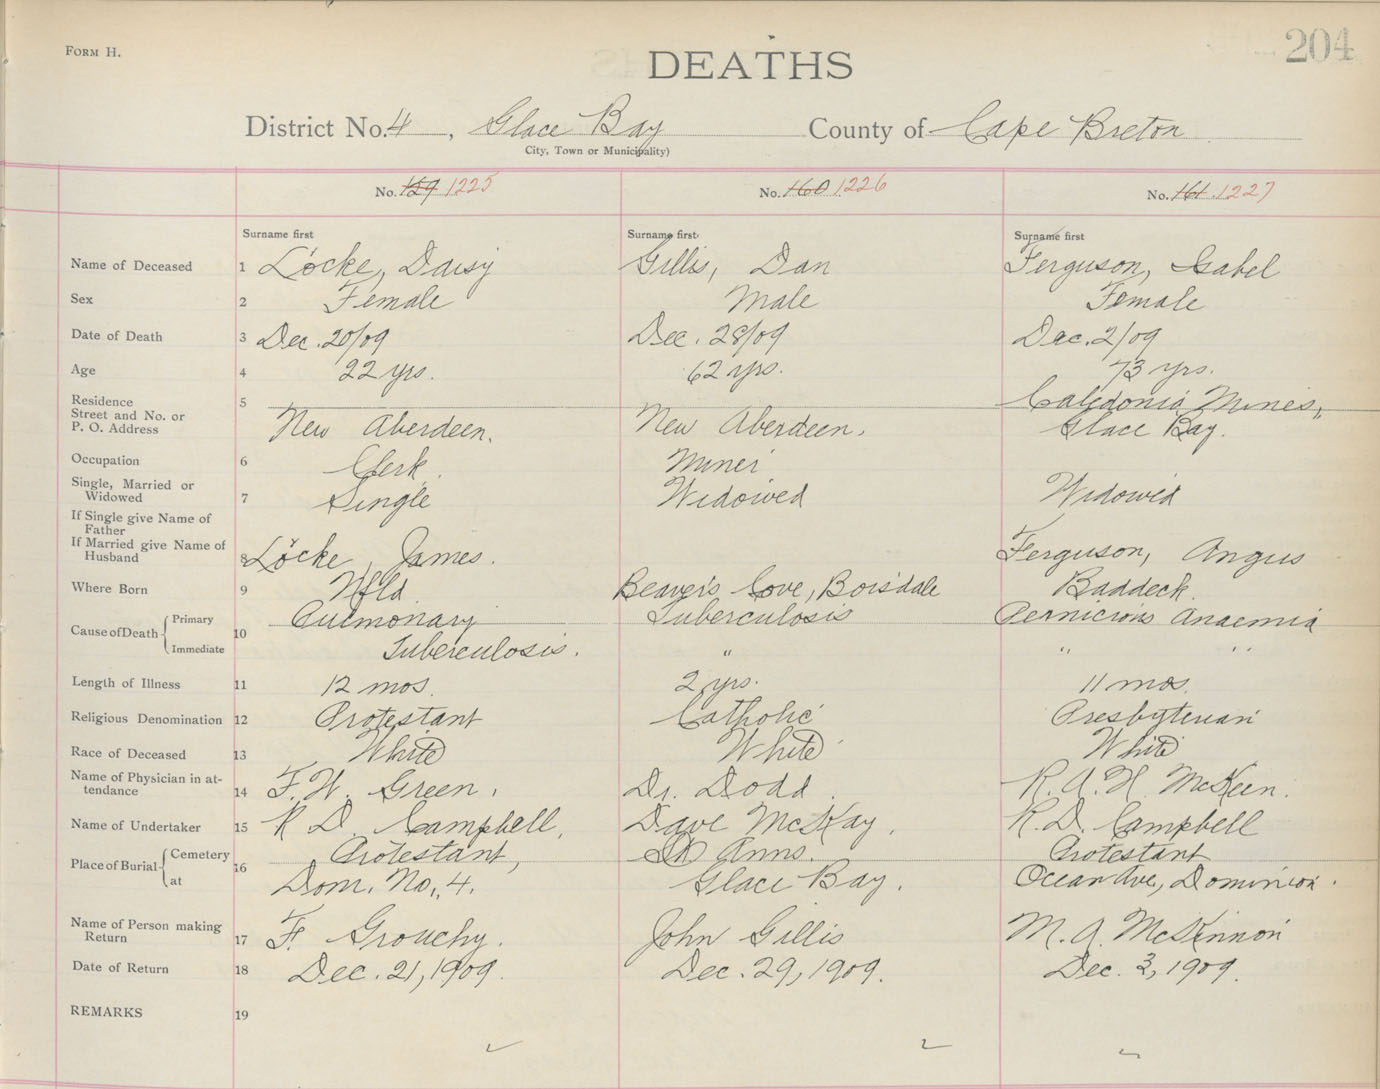 Form H.
204
DEATHS
District No. 4, Glace Bay County of Cape Breton
City, Town or Municipality)
No. 159 1225 No. 160 1226 No. 161 1227
Surname first Surname first Surname first
Name of Deceased 1 Locke, Daisy Gillis, Dan Ferguson, Isabel
Sex 2 Female Male Female
Date of Death 3 Dec. 20/09 Dec. 28/09 Dec. 2/09
Age 4 22 yrs. 62 yrs. 73 yrs.
Residence 5 Caledonia Mines,
Street and No. or
P. O. Address New Aberdeen. New Aberdeen. Glace Bay.
Occupation 6 Clerk. Miner
Single, Married or
Widowed 7 Single Widowed Widowed
If Single give Name of
Father
If Married give Name of
Husband 8 Locke, James. Ferguson, Angus
Where Born 9 Nfld Beaver's Cove, Boisdale Baddeck.
Cause of Death Primary 10 Pulmonary Tuberculosis Pernicious Anaemia
Immediate Tuberculosis. " " "
Length of Illness 11 12 mos. 2 yrs. 11 mos.
Religious Denomination 12 Protestant Catholic Presbyterian
Race of Deceased 13 White White White
Name of Physician in at-
tendance 14 F. W. Green. Dr. Dodd. R. A. H. McKeen.
Name of Undertaker 15 R D. Campbell, Dave McKay. R. D. Campbell
Place of Burial Cemetery 16 Protestant, St Anns. Protestant
at Dom. No. 4. Glace Bay. Ocean Ave, Dominion.
Name of Person making
Return 17 F. Grouchy. John Gillis M. A. McKinnon
Date of Return 18 Dec. 21, 1909. Dec. 29, 1909. Dec. 3, 1909.
REMARKS 19